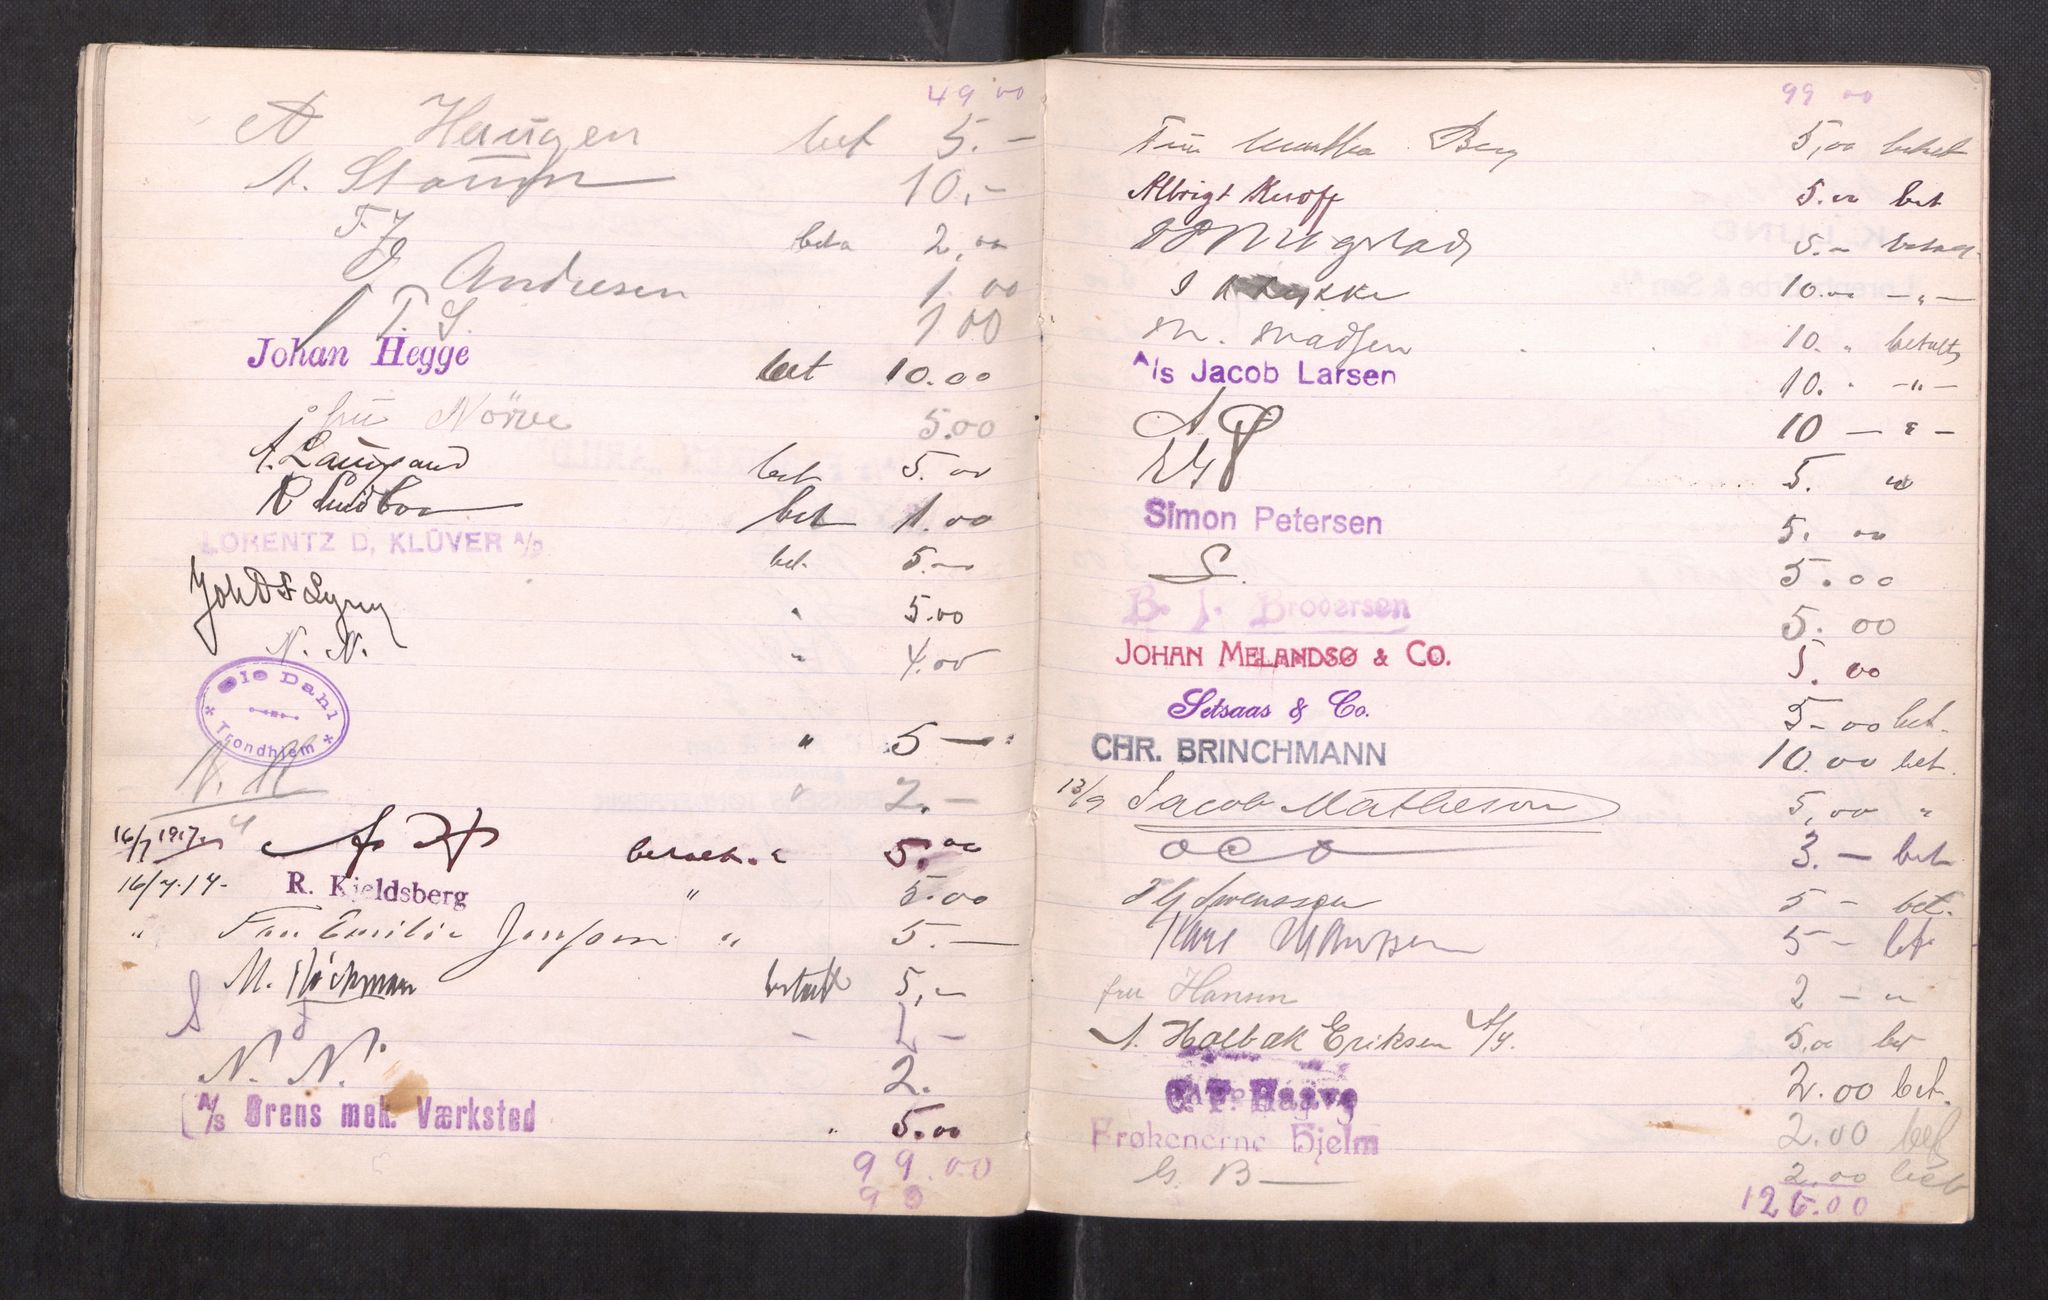 49 00
A Haugen bet 5.-
A. Staum 10.-
F. J. beta 2,00
J Andresen 1.00
T. S. 1.00
Johan Hegge bet 10.00
fru Nörve 5.00
A. Laugsand bet 5.00
R Lindboe bet 1.00
LORENTZ D. KLÜVER A/S bet. 5.-
Joh D F Lysøy " 5.00
N. N. " 4.00
Ole Dahl Trondhjem " 5 -
N. N. " 2.-
16/7 1917 betalt. 5.00
16/7.17. R. Kjeldsberg " 5.00
" Frau Emilie Jenssen " 5.-
M. betalt 5,-
S
N. N. 2.
A/S Ørens mek. Værksted " 5.00
99.00
99 00
Fru Martha Berg 5,00 betalt
Albrigt Knoff 5.00 bet
5.- betalt
Lykke 10.00 -"-
M. Madsen 10. " betalt
A/S Jacob Larsen 10. " -"-
A P 10 - " -
5. "
Simon Petersen 5. 00
S. 5.00
B. J. Brodersen 5. 00
JOHAN MELANDSØ & CO. 5. 00
Setsaas & Co. 5-00 bet.
CHR. BRINCHMANN 10.00 bet.
13/9 Jacob Matheson 5,00 "
O C O 3.- bet
Svenssen 5 - bet.
Karl 5 - bet
fru Hansen 2 - "
A. Holbæk Eriksen A/S. 5.00 bet
C. F. Haave 2.00 bet.
Frøkenerne Hjelm 2.00 bet
G. B 2.00 bet
126.00